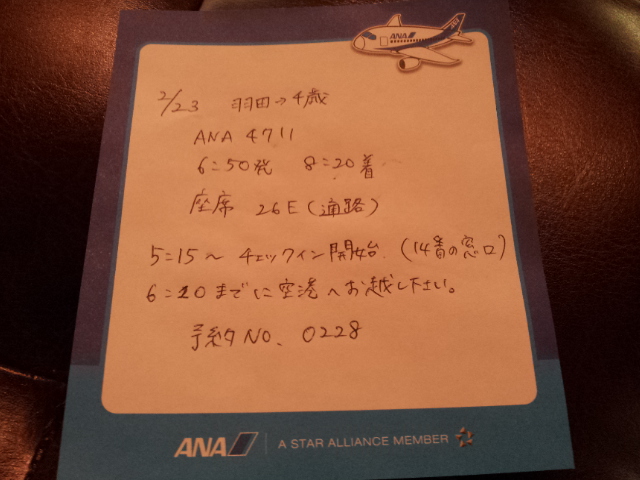 ANA
2/23 羽田→千歳
ANA 4711
6:50発 8:20着
座席 26E(通路)
5:15～ チェックイン開始.(14番の窓口)
6:20までに空港へお越し下さい。
予約NO. 0228
ANA A STAR ALLIANCE MEMBER